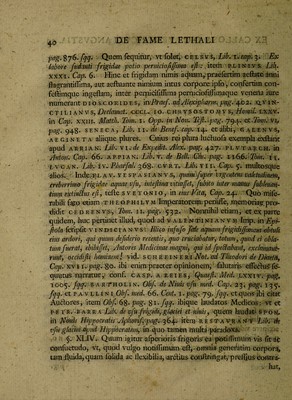 40 DE FAME LETHALI
pag. 876. sqq. Quem sequitur, ut solet, CELSUS, Lib. I. cap. 3. Ex
labore sudanti frigidae potio perniciosissima est: item PLINIUS Lib.
XXXI. Cap. 6. Hinc et frigidam nimis aquam, praesertim aestate anni
flagrantissima, aut aestuante nimium intus corpore ipso, confertim con-
festimque ingestam, inter perniciosissima potentissimaque venena jure
numerant DIOSCORIDES, in Proof. ad Alexipharm. pag. 402. QUIN-
CTILIANUS, Declamat. CCCL. IO. CHRYSOSTOMUS, Homil. LXXV.
in Cap. XXIII. Matth. Tom. I. Opp. in Nov. Test. pag. 794. et Tom. IV.
pag. 948. SENECA, Lib. II. de Benef. cap. 14. et alibi, GALENUS,
AEGINETA aliique plures. Cujus rei plura luctuosa exempla exstare
apud ARRIAN. Lib. VI. de Expedit. Alex. pag. 427. PLUTARCH. in
Anton. Cap. 66. APPIAN. Lib. V. de Bell. Civ. pag. 1166. Tom. II.
LUCAN. Lib. IV. Pharsal. 368. CURT. Lib. VII. Cap. 5. multosque
alios. Inde FLAV. VESPASIANUS, quum super urgentem valetudinem,
creberrimo frigidae aquae usu, intestina vitiasset, subito inter manus sublevan-
tium exstinctus est, teste SUETONIO, in ejus Vita, Cap. 24. Quo mise-
rabili fato etiam THEOPHILUM Imperatorem periisse, memoriae pro-
didit CEDRENUS, Tom. II. pag. 533. Nonnihil etiam, et ex parte
quidem, huc pertinet illud, quod ad VALENTINIANUM Imp. in Epi-
stola scripsit VINDICIANUS: Illico infuso fele aquam frigidissimam obtulit
eius ardori, qui quum desiderio retentis, quo cruciabatur, totum, quod ei obla-
tum fuerat, ebibisset, Antores Medicinae magni, qui id spectabant, exclamave-
runt, occidisti hominem! vid. SCHREINERI Not. ad Theodori de Diaeta,
Cap. XVI. pag. 80. ibi enim praeter opinionem, salutaris effectus se-
quutus narratur, cons. CASP. A REIES, Quaest. Med. LXXIV. pag.
1005. sqq. BARTHOLIN. Obs. de Nivis usu med. Cap. 23. pag. 135.
sqq. et PAULLINI Obs. med. 66. Cent. I. pag. 79. sqq. et quos ibi citat
Auctores, item Obs. 68. pag. 81. sqq. ibique laudatos Medicos: ut et
PETR. BARRA Lib. de usu frigidi, glaciei et nivis, quem laudat SPON.
in Novis Hippocratis Aphoris. pag. 364. item RESTAURANT Lib. de
usu glaciei apud Hippocratem, in quo tamen multi paradoxa.
§. XLIV. Quum igitur asperioris frigoris ea potissimum vis sit et
consuetudo, ut, quod vulgo notissimum est, omnia generatim corpora,
tam fluida, quam solida ac flexibilia, arctius constringat, pressius contra-
hat,